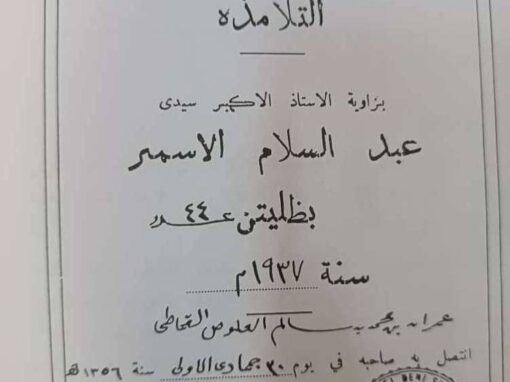 التلامذه
بزاوية الاستاذ الاكبر سيدى
عبد السلام الاسمر
بظليتن عدد ٤٤
سنة ١٩٣٧م
عمران بن سالم العلوص القحاطى
اتصل به صاحبه في يوم ٣٠ جمادى الاولى سنة ١٣٥٦ هـ